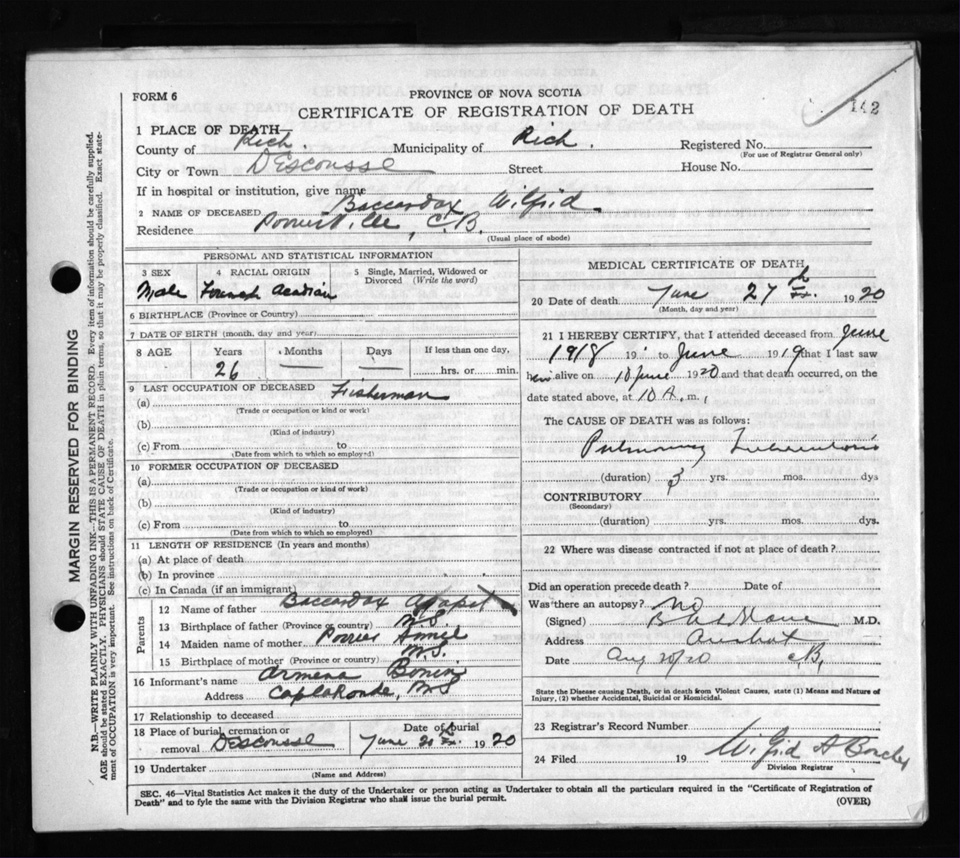 142
FORM 6
PROVINCE OF NOVA SCOTIA
CERTIFICATE OF REGISTRATION OF DEATH
1 PLACE OF DEATH
County of Rich. Municipality of Rich. Registered No.
(For use of Registrar General only)
City or Town DEscousse Street House No.
If in hospital or institution, give name
2 NAME OF DECEASED Boccardax Wilfrid.
Residence C.B.
(Usual place of abode)
PERSONAL AND STATISTICAL INFORMATION
3 SEX 4 RACIAL ORIGIN 5 Single, Married, Widowed or Divorced (Write the word)
Male French Acadian
6 BIRTHPLACE (Province or Country)
7 DATE OF BIRTH (month, day and year)
8 AGE Years Months Days If less than one day,
26 — — hrs. or min.
9 LAST OCCUPATION OF DECEASED
(a) Fisherman
(Trade or occupation or kind of work)
(b)
(Kind of industry)
(c) From to
(Date from which to which so employed)
10 FORMER OCCUPATION OF DECEASED
(a)
(Trade or occupation or kind of work)
(b)
(Kind of industry)
(c) From to
(Date from which to which so employed)
11 LENGTH OF RESIDENCE (In years and months)
(a) At place of death
(b) In province
(c) In Canada (if an immigrant)
Parents
12 Name of father Boccardax
13 Birthplace of father (Province or country) N.S.
14 Maiden name of mother
15 Birthplace of mother (Province or country) N.S.
16 Informant's name Armena
Address CaplaRonde, N.S
17 Relationship to deceased
18 Place of burial, cremation or removal DEscousse Date of burial June 1920
19 Undertaker
(Name and Address)
MEDICAL CERTIFICATE OF DEATH
20 Date of death June 27th 1920
(Month, day and year)
21 I HEREBY CERTIFY, that I attended deceased from June
1918 19 to June 1919 that I last saw
him alive on 10 June 1920 and that death occurred, on the
date stated above, at 10 A. m.,
The CAUSE OF DEATH was as follows:
Pulmonary Tuberculosis
(duration) 3 yrs. mos. dys
CONTRIBUTORY
(Secondary)
(duration) yrs. mos. dys.
22 Where was disease contracted if not at place of death?
Did an operation precede death? Date of
Was there an autopsy? No
(Signed) M.D.
Address Arichat
Date Aug 20/20 CB.
State the Disease causing Death, or in death from Violent Causes, state (1) Means and Nature of
Injury, (2) whether Accidental, Suicidal or Homicidal.
23 Registrar's Record Number
24 Filed 19 Wilfrid A
Division Registrar
SEC. 46—Vital Statistics Act makes it the duty of the Undertaker or person acting as Undertaker to obtain all the particulars required in the "Certificate of Registration of
Death" and to fyle the same with the Division Registrar who shall issue the burial permit. (OVER)
MARGIN RESERVED FOR BINDING
N.B.—WRITE PLAINLY WITH UNFADING INK—THIS IS A PERMANENT RECORD. Every item of information should be carefully supplied.
AGE should be stated EXACTLY. PHYSICIANS should STATE CAUSE OF DEATH in plain terms, so that it may be properly classified. Exact state-
ment of OCCUPATION is very important. See instructions on back of Certificate.